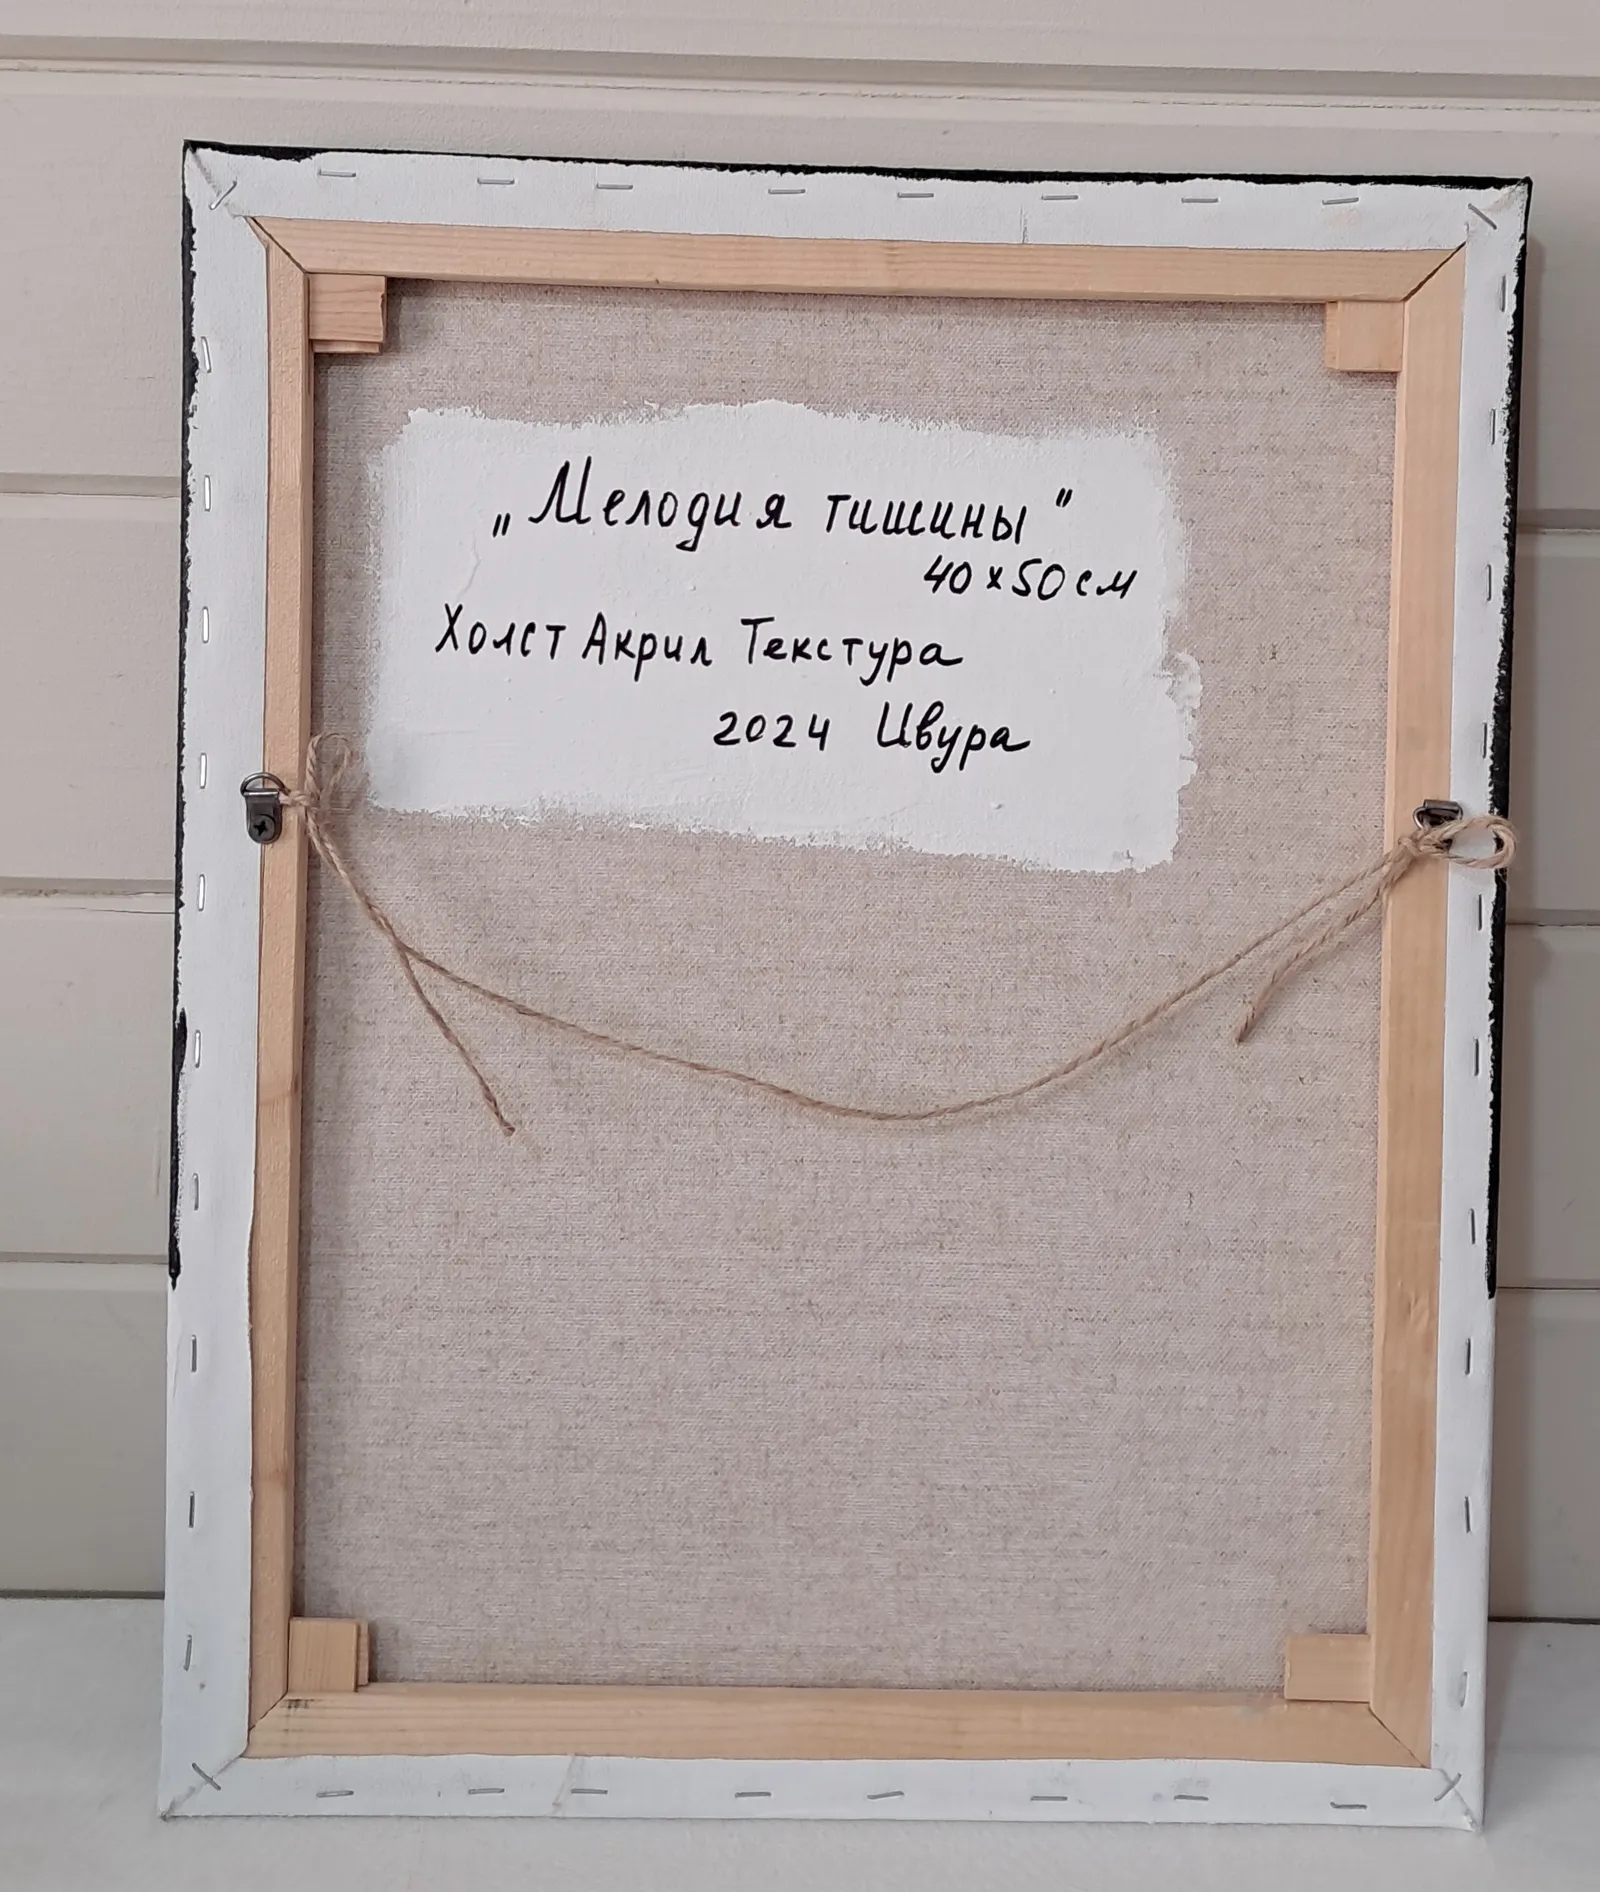 „Мелодия тишины"
40х50см
Холст Акрил Текстура
2024 Ивура